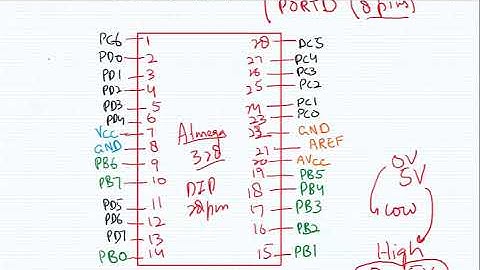 PORTD (8 pins)
PC6 1 28 DC5
PD0 2 27 PC4
PD1 3 26 PC3
PD2 4 25 PC2
PD3 5 24 PC1
PD4 6 23 PC0
VCC 7 22 GND
GND 8 21 AREF
PB6 9 20 AVCC
PB7 10 19 PB5
PD5 11 18 PB4
PD6 12 17 PB3
PD7 13 16 PB2
PB0 14 15 PB1
Atmega
328
DIP
28pin
0V
5V
Low
High